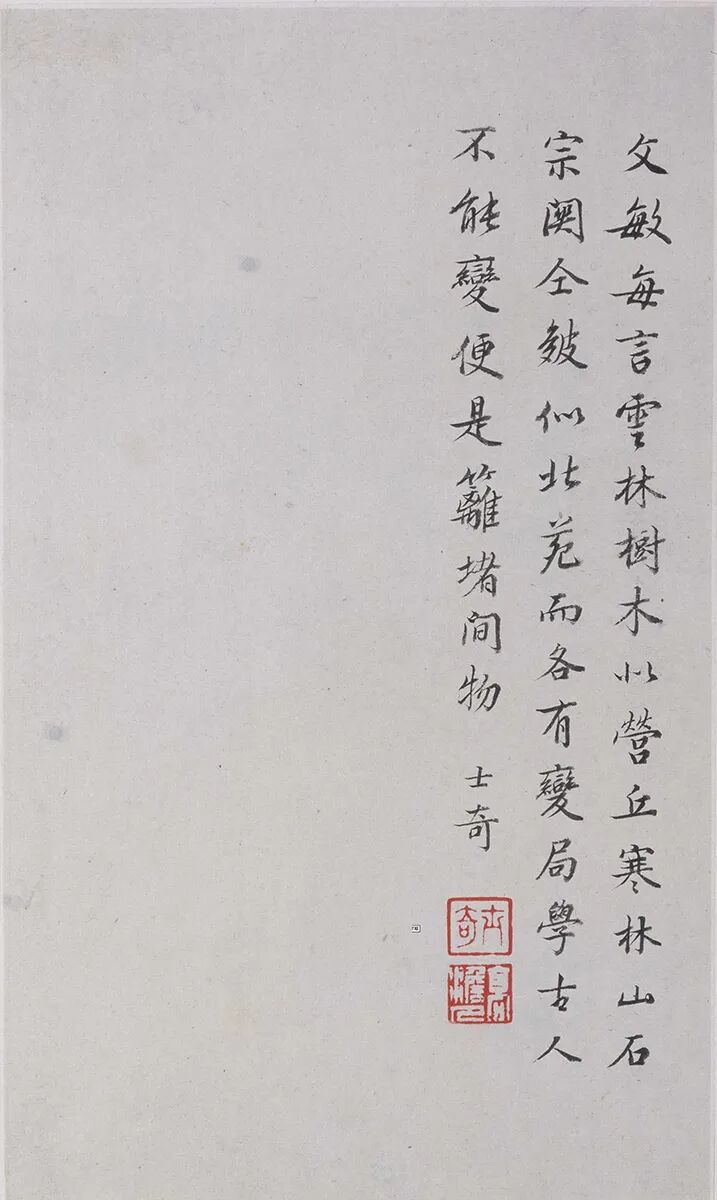 文敏每言雲林樹木似營丘寒林山石
宗關仝皴似北苑而各有變局學古人
不能變便是籬堵间物
士奇
士奇